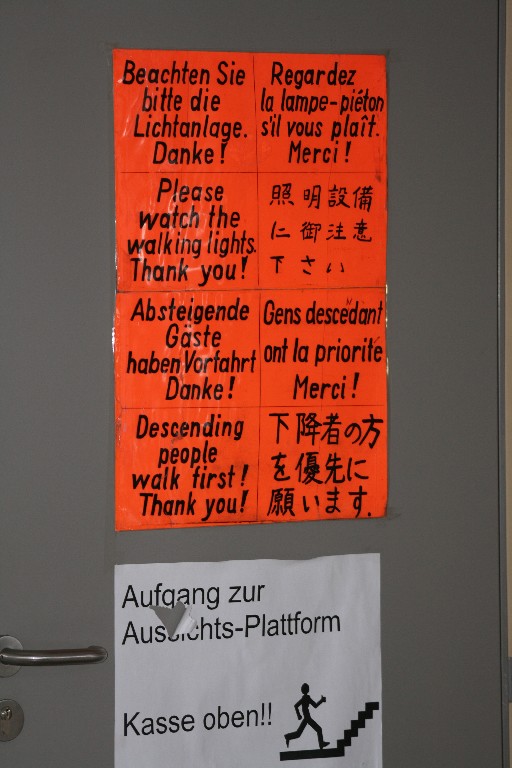 Beachten Sie
bitte die
Lichtanlage.
Danke!
Regardez
la lampe-piéton
s'il vous plaît.
Merci!
Please
watch the
walking lights.
Thank you!
照明設備
に御注意
下さい
Absteigende
Gäste
haben Vorfahrt
Danke!
Gens descedant
N
ont la priorite
Merci!
Descending
people
walk first!
Thank you!
下降者の方
を優先に
願います.
Aufgang zur
Aussichts-Plattform
Kasse oben!!